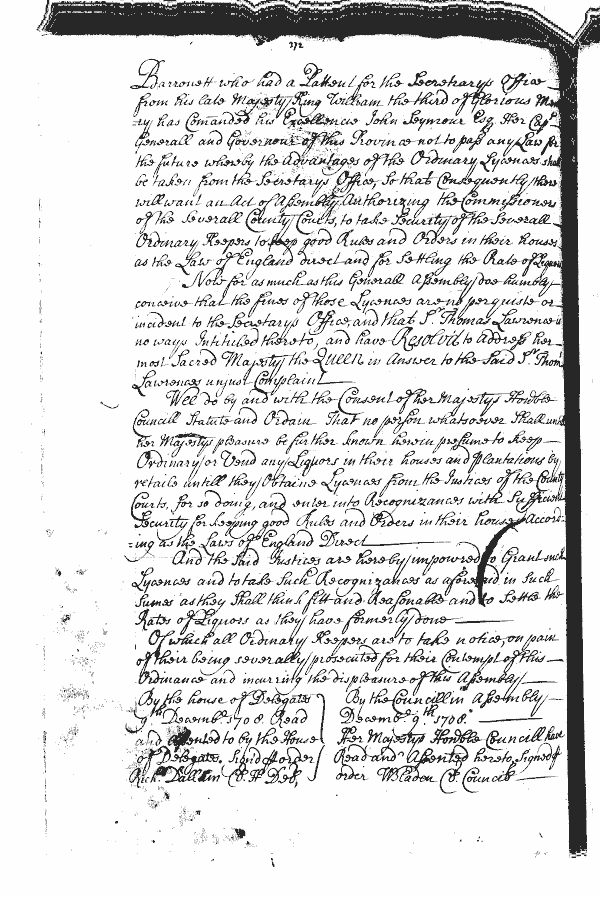 272
Barronett who had a Pattent for the Secretarys Office
from his late Majesty King William the third of Glorious Memo
ry has Comanded his Excellencie John Seymour Esq. Her Capt.
Generall and Governour of this Province not to pass any Law for
the future whereby the Advantages of the Ordinary Lycences shall
be taken from the Secretarys Office, So that Consequently there
will want an Act of Assembly Authorizing the Commissioners
of the Severall County Courts, to take Security of the Severall
Ordinary Keepers to keep good Rules and Orders in their houses
as the Law of England direct and for Setling the Rate of Liquors
Now for as much as this Generall Assembly doe humbly
conceive that the fines of those Lycences are no perquisite or
incident to the Secretarys Office, and that Sr. Thomas Lawrence is
no ways Intitled thereto, and have Resolved to Address her
most Sacred Majesty the QUEEN in Answer to the Said Sr. Thomas
Lawrences unjust Complaint
Wee do by and with the Consent of her Majestys Honble
Councill Statute and Ordain That no person whatsoever Shall untill
her Majestys pleasure be further known herein presume to keep
Ordinary or Vend any Liquors in their houses and Plantations by
retaile untill they Obtaine Lycences from the Justices of the County
Courts, for so doing, and enter into Recognizances with Sufficient
Security for keeping good Rules and Orders in their houses Accord-
=ing as the Law of England Direct
And the Said Justices are hereby impowered to Grant such
Lycences and to take Such Recognizances as aforesaid in Such
Sumes as they Shall think fitt and Reasonable and to Settle the
Rates of Liquors as they have formerly done
Of which all Ordinary Keepers are to take notice, on pain
of their being severally prosecuted for their Contempt of this
Ordinance and incurring the displeasure of this Assembly
By the house of Delegates
9th. Decemb. 1708. Read
and assented to by the House
of Delegates. Signd p order
Richd. Dallam Cl. H. Del.
By the Councill in Assembly
Decemb. 9th. 1708.
Her Majestys Honble Councill have
Read and Assented hereto, Signed p
order W Bladen Cl. Council